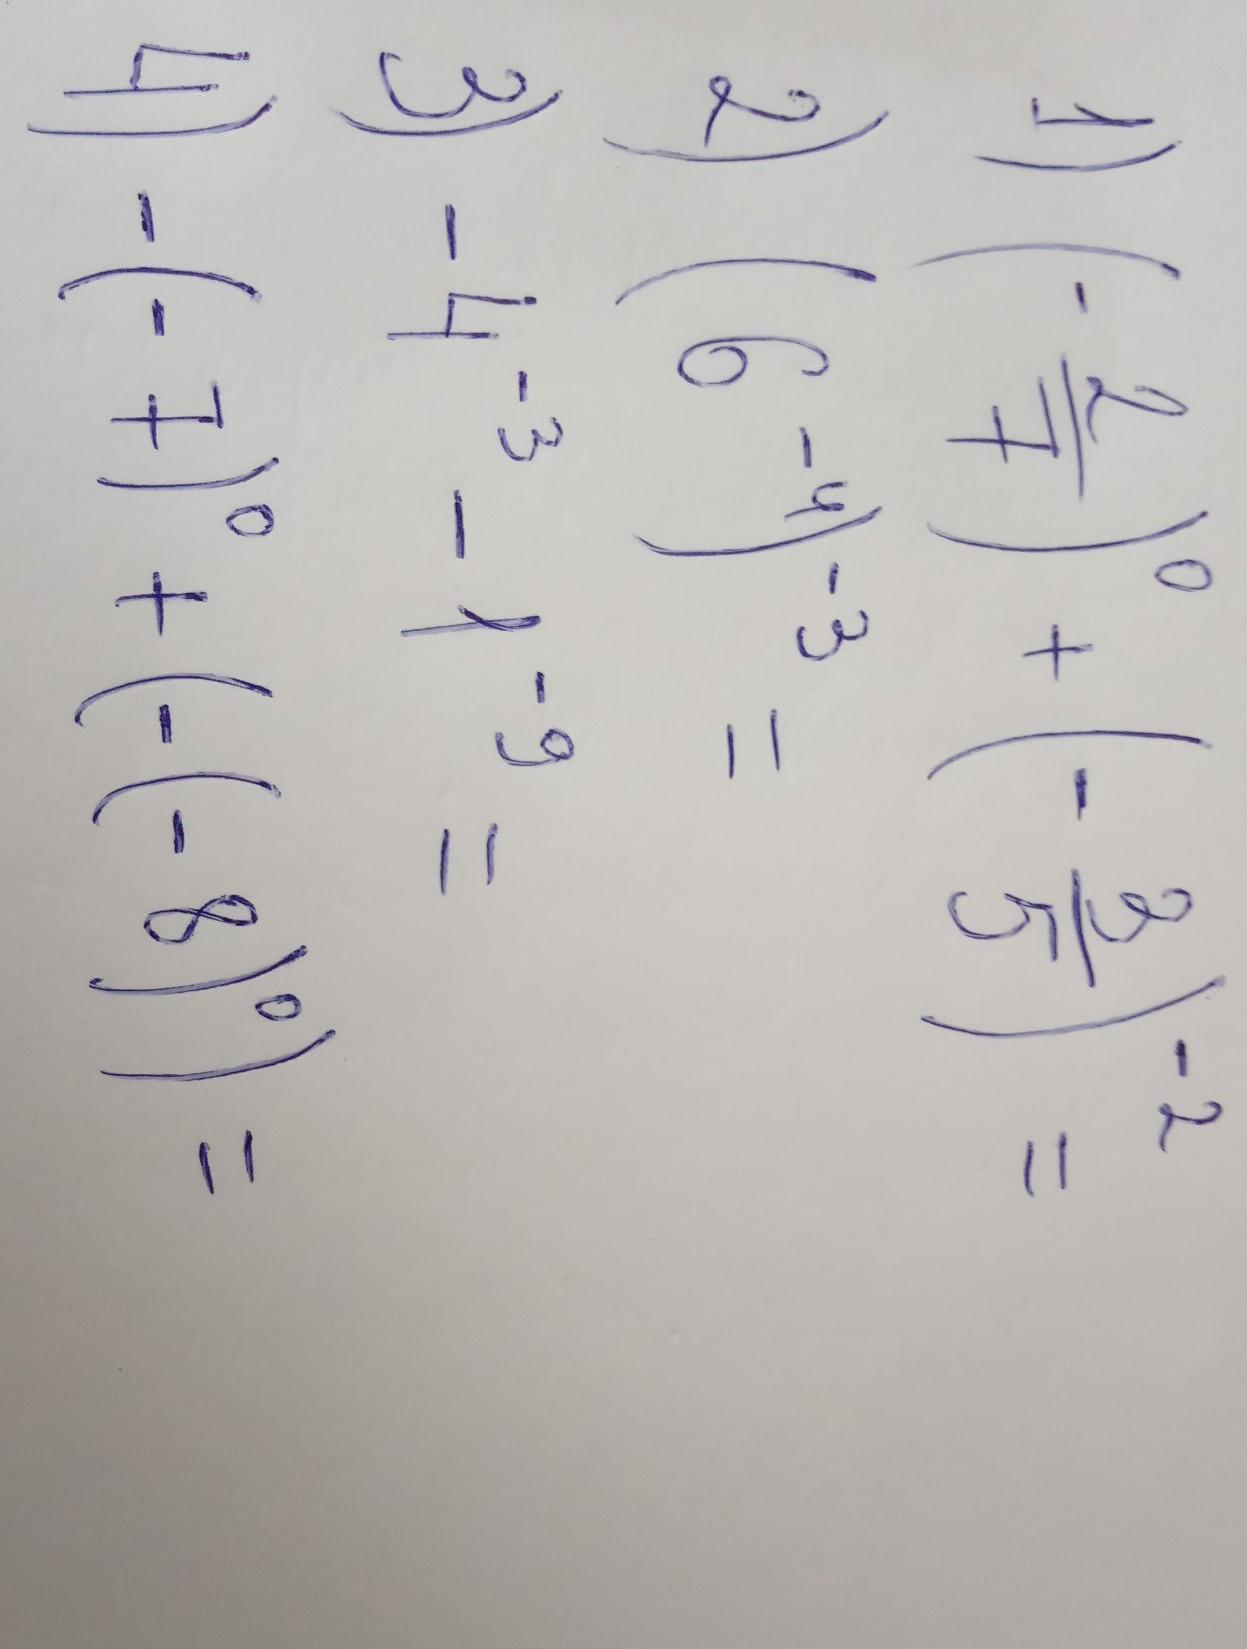 1) (-2/7)⁰ + (-3/5)⁻² =
2) (6⁻⁴)⁻³ =
3) -4⁻³ - 1⁻⁹ =
4) -(-7)⁰ + (-(-8)⁰) =